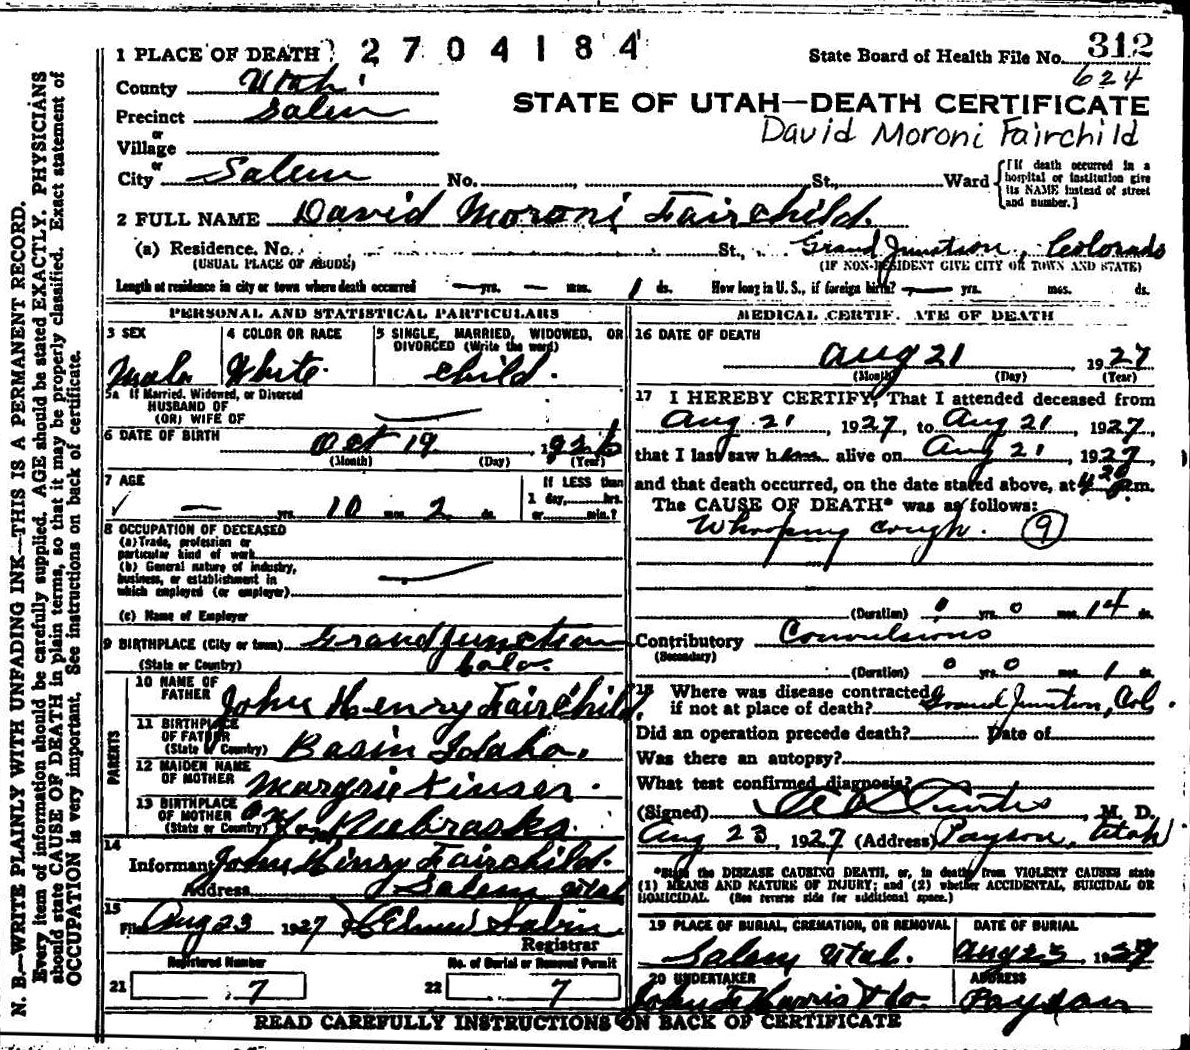 1 PLACE OF DEATH 2704184 State Board of Health File No. 312
County Utah 624
Precinct Salem STATE OF UTAH—DEATH CERTIFICATE
or David Moroni Fairchild
Village
or
City Salem No. St., Ward [If death occurred in a hospital or institution give its NAME instead of street and number.]
2 FULL NAME David Moroni Fairchild.
(a) Residence. No. St., Grand Junction, Colorado
(USUAL PLACE OF ABODE) (IF NON-RESIDENT GIVE CITY OR TOWN AND STATE)
Length of residence in city or town where death occurred — yrs. — mos. 1 ds. How long in U. S., if foreign birth? — yrs. mos. ds.
PERSONAL AND STATISTICAL PARTICULARS
3 SEX 4 COLOR OR RACE 5 SINGLE, MARRIED, WIDOWED, OR DIVORCED (Write the word)
Male White. child.
5a If Married, Widowed, or Divorced
HUSBAND OF
(OR) WIFE OF
6 DATE OF BIRTH Oct 19 , 1926
(Month) (Day) (Year)
7 AGE If LESS than
1 day, hrs.
— yrs. 10 mos. 2 ds. or min.?
8 OCCUPATION OF DECEASED
(a) Trade, profession or
particular kind of work
(b) General nature of industry,
business, or establishment in
which employed (or employer)
(c) Name of Employer
9 BIRTHPLACE (City or town) Grand Junction
(State or Country) Colo.
PARENTS
10 NAME OF FATHER John Henry Fairchild,
11 BIRTHPLACE OF FATHER (State or Country) Basin Idaho.
12 MAIDEN NAME OF MOTHER Margrie Kinser.
13 BIRTHPLACE OF MOTHER (State or Country) Nebraska.
14
Informant John Henry Fairchild.
Address Salem Utah
15
File Aug 23 1927 Sabin
Registrar
Registered Number No. of Burial or Removal Permit
21 7 22 7
MEDICAL CERTIFICATE OF DEATH
16 DATE OF DEATH
Aug 21 1927
(Month) (Day) (Year)
17 I HEREBY CERTIFY, That I attended deceased from
Aug 21, 1927, to Aug 21, 1927,
that I last saw him alive on Aug 21, 1927
and that death occurred, on the date stated above, at 4 20 p.m.
The CAUSE OF DEATH* was as follows:
Whooping cough. 9
(Duration) 0 yrs. 0 mos. 14 ds.
Contributory Convulsions
(Secondary)
(Duration) 0 yrs. 0 mos. 1 ds.
18 Where was disease contracted
if not at place of death? Grand Junction, Col.
Did an operation precede death? Date of
Was there an autopsy?
What test confirmed diagnosis?
(Signed) Curtis, M. D.
Aug 23, 1927 (Address) Payson, Utah
*State the DISEASE CAUSING DEATH, or, in deaths from VIOLENT CAUSES state
(1) MEANS AND NATURE OF INJURY; and (2) whether ACCIDENTAL, SUICIDAL OR
HOMICIDAL. (See reverse side for additional space.)
19 PLACE OF BURIAL, CREMATION, OR REMOVAL DATE OF BURIAL
Salem Utah. Aug 23 1927
20 UNDERTAKER ADDRESS
Payson
READ CAREFULLY INSTRUCTIONS ON BACK OF CERTIFICATE
N. B.—WRITE PLAINLY WITH UNFADING INK—THIS IS A PERMANENT RECORD.
Every item of information should be carefully supplied. AGE should be stated EXACTLY. PHYSICIANS
should state CAUSE OF DEATH in plain terms, so that it may be properly classified. Exact statement of
OCCUPATION is very important. See instructions on back of certificate.